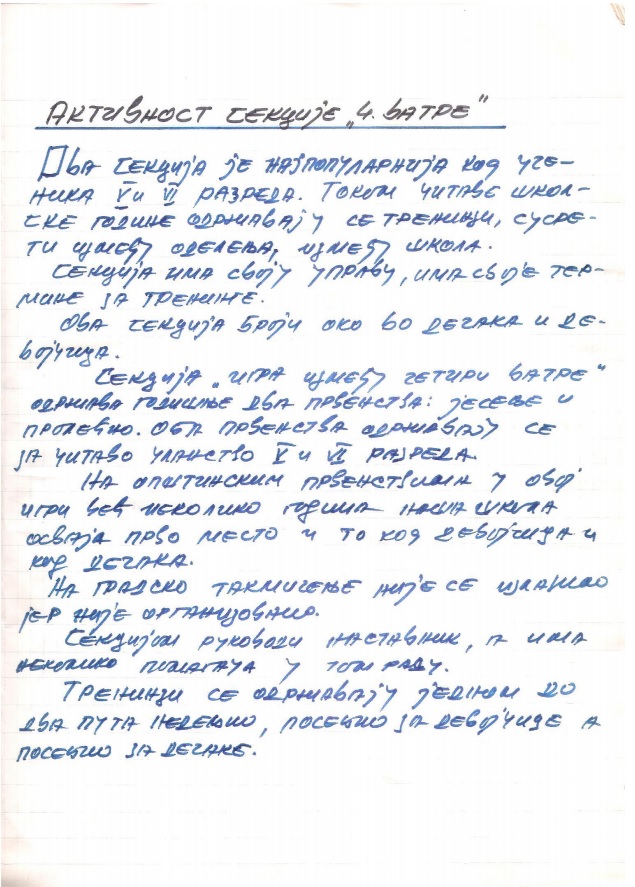 АКТИВНОСТ СЕКЦИЈЕ „4. ВАТРЕ"
ОВА СЕКЦИЈА ЈЕ НАЈПОПУЛАРНИЈА КОД УЧЕ-
НИКА V И VI РАЗРЕДА. ТОКОМ ЧИТАВЕ ШКОЛ-
СКЕ ГОДИНЕ ОДРЖАВАЈУ СЕ ТРЕНИНЗИ, СУСРЕ-
ТИ ИЗМЕЂУ ОДЕЛЕЊА, ИЗМЕЂУ ШКОЛА.
СЕКЦИЈА ИМА СВОЈУ УПРАВУ, ИМА СВОЈЕ ТЕР-
МИНЕ ЗА ТРЕНИНГЕ.
ОВА СЕКЦИЈА БРОЈИ ОКО 80 ДЕЧАКА И ДЕ-
ВОЈЧИЦА.
СЕКЦИЈА „ИГРА ИЗМЕЂУ ЧЕТИРИ ВАТРЕ"
ОДРЖАВА ГОДИШЊЕ ДВА ПРВЕНСТВА: ЈЕСЕЊЕ И
ПРОЛЕЋНО. ОБА ПРВЕНСТВА ОДРЖАВАЈУ СЕ
ЗА ЧИТАВО ЧЛАНСТВО V И VI РАЗРЕДА.
НА ОПШТИНСКИМ ПРВЕНСТВИМА У ОВОЈ
ИГРИ ВЕЋ НЕКОЛИКО ГОДИНА НАША ШКОЛА
ОСВАЈА ПРВО МЕСТО И ТО КОД ДЕВОЈЧИЦА И
КОД ДЕЧАКА.
НА ГРАДСКО ТАКМИЧЕЊЕ НИЈЕ СЕ ИЗЛАЗИЛО
ЈЕР НИЈЕ ОРГАНИЗОВАНО.
СЕКЦИЈОМ РУКОВОДИ НАСТАВНИК, А ИМА
НЕКОЛИКО ПОМАГАЧА У ТОМ РАДУ.
ТРЕНИНЗИ СЕ ОДРЖАВАЈУ ЈЕДНОМ ДО
ДВА ПУТА НЕДЕЉНО, ПОСЕБНО ЗА ДЕВОЈЧИЦЕ А
ПОСЕБНО ЗА ДЕЧАКЕ.